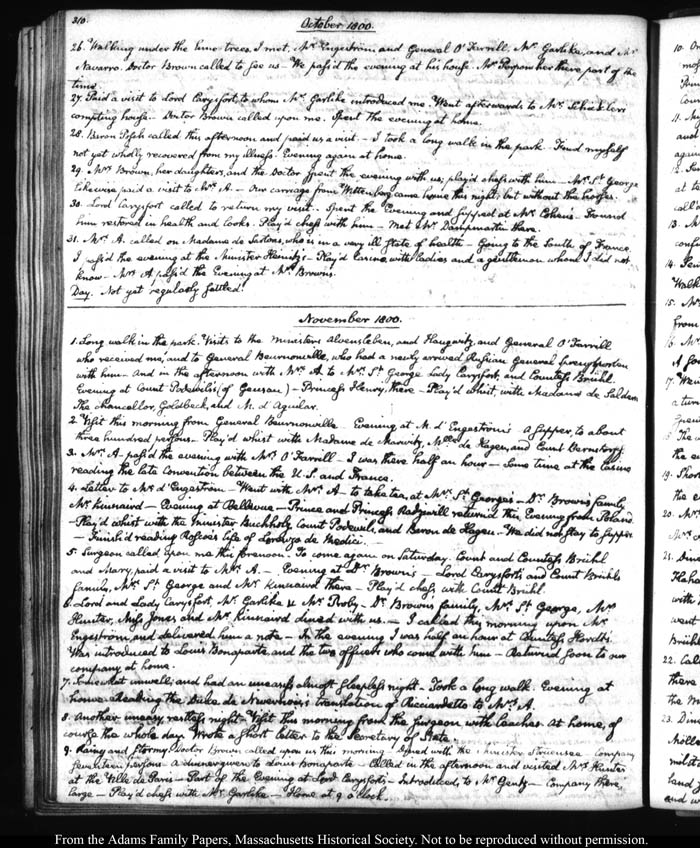 310.
October 1800.
26. Walking under the lime trees, I met, Mr Engeström and General O'Farrill, Mr Garlike, and Mr
Navarro. Doctor Brown called to see us. We pass'd the evening at his house. Mr there part of the
time.
27. Paid a visit to Lord Carysfort, to whom Mr Garlike introduced me. Went afterwards to Mr Schickler's
compting house. Doctor Brown called upon me. Spent the evening at home.
28. Baron called this afternoon and paid us a visit. I took a long walk in the park. Find myself
not yet wholly recovered from my illness. Evening again at home.
29. Mrs Brown, her daughters, and the Doctor spent the evening with us; play'd chess with him — Mrs St George
likewise paid a visit to Mrs A. — Our carriage from Wittenberg came home this night; but without the horses.
30. Lord Carysfort called to return my visit. Spent the Evening and supped at Mr Cohen's. Found
him restored in health and looks. Play'd chess with him — Met Mr Dampmartin there.
31. Mrs A. called on Madame de who is in a very ill state of health — Going to the South of France.
I pass'd the evening at the Minister Heinitz's — Play'd Casino, with ladies and a gentleman whom I did not
know — Mrs A pass'd the Evening at Mrs Brown's.
Day. Not yet regularly settled.
November 1800.
1. Long walk in the park. Visits to the ministers Alvensleben, and Haugwitz, and General O'Farrill
who received me, and to General Beurnonville, who had a newly arrived Russian General
with him — And in the afternoon with Mrs A. to Mrs St George Lady Carysfort, and Countess Brühl.
Evening at Count Podewils's (of Gusow) — Princess Henry, there — Play'd whist with Madame de Saldern
The Chancellor, Goldbeck, and M. d'Aguilar.
2. Visit this morning from General Beurnonville. Evening at M. d'Engeström's. A supper, to about
three hundred persons. Play'd whist with Madame de Marwitz, Mlle de Hagen, and Count Bernstorff.
3. Mrs A. pass'd the evening with Mrs O'Farrill — I was there half an hour — Some time at the Casino
reading the late Convention between the U.S. and France.
4. Letter to Mr d'Engeström — Went with Mrs A — to take tea, at Mrs St George's — Dr Brown's family,
Mr Kinnaird — Evening at Bellevue — Prince and Princess Radziwill return'd this Evening from Poland
— Play'd whist with the Minister Buchholz, Count Podewils, and Baron de Hagen. — We did not stay to supper
— Finish'd reading Roscoe's life of Lorenzo de Medici.
5. Surgeon called upon me this forenoon. To come again on Saturday. Count and Countess Brühl
and Mary, paid a visit to Mrs A. — Evening at Dr Brown's — Lord Carysfort's and Count Brühl's
family, Mrs St George and Mr Kinnaird there — Play'd chess, with Count Brühl.
6. Lord and Lady Carysfort, Mr Garlike & Mr Proby — Dr Brown's family, Mrs St George, Mrs
Hunter, Miss Jones and Mr Kinnaird dined with us. — I called this morning upon Mr
Engeström, and delivered him a note — In the evening I was half an hour at Countess
Was introduced to Louis Bonaparte, and the two officers who came with him — Returned soon to our
company at home.
7. Somewhat unwell; and had an uneasy almost sleepless night — Took a long walk. Evening at
home. Reading the Duke de Nivernois's translation of Ricciardetto to Mrs A.
8. Another uneasy, restless night — Visit this morning from the surgeon with leeches. At home, of
course the whole day. Wrote a short letter to the Secretary of State.
9. Rainy and stormy. Doctor Brown called upon us this morning. Dined with the Minister Struensee. Company
seventeen persons — A dinner given to Louis Bonaparte — Called in the afternoon and visited Mrs Hunter
at the Ville de Paris — Part of the Evening at Lord Carysfort's — Introduced to Mr Gentz — Company there,
large — Play'd chess with Mr Garlike — Home at 9 o'clock.
From the Adams Family Papers, Massachusetts Historical Society. Not to be reproduced without permission.